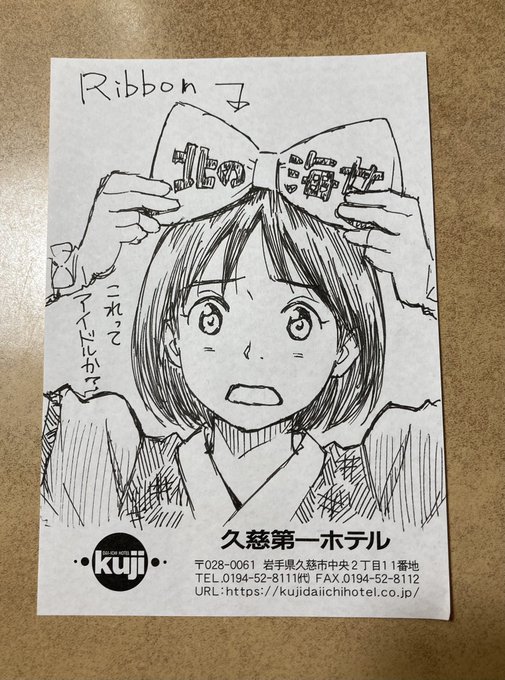 Ribbon
北の海女
これって
アイドルか?
DAI-ICHI HOTEL
kuji
久慈第一ホテル
〒028-0061 岩手県久慈市中央2丁目11番地
TEL.0194-52-8111㈹ FAX.0194-52-8112
URL:https://kujidaiichihotel.co.jp/